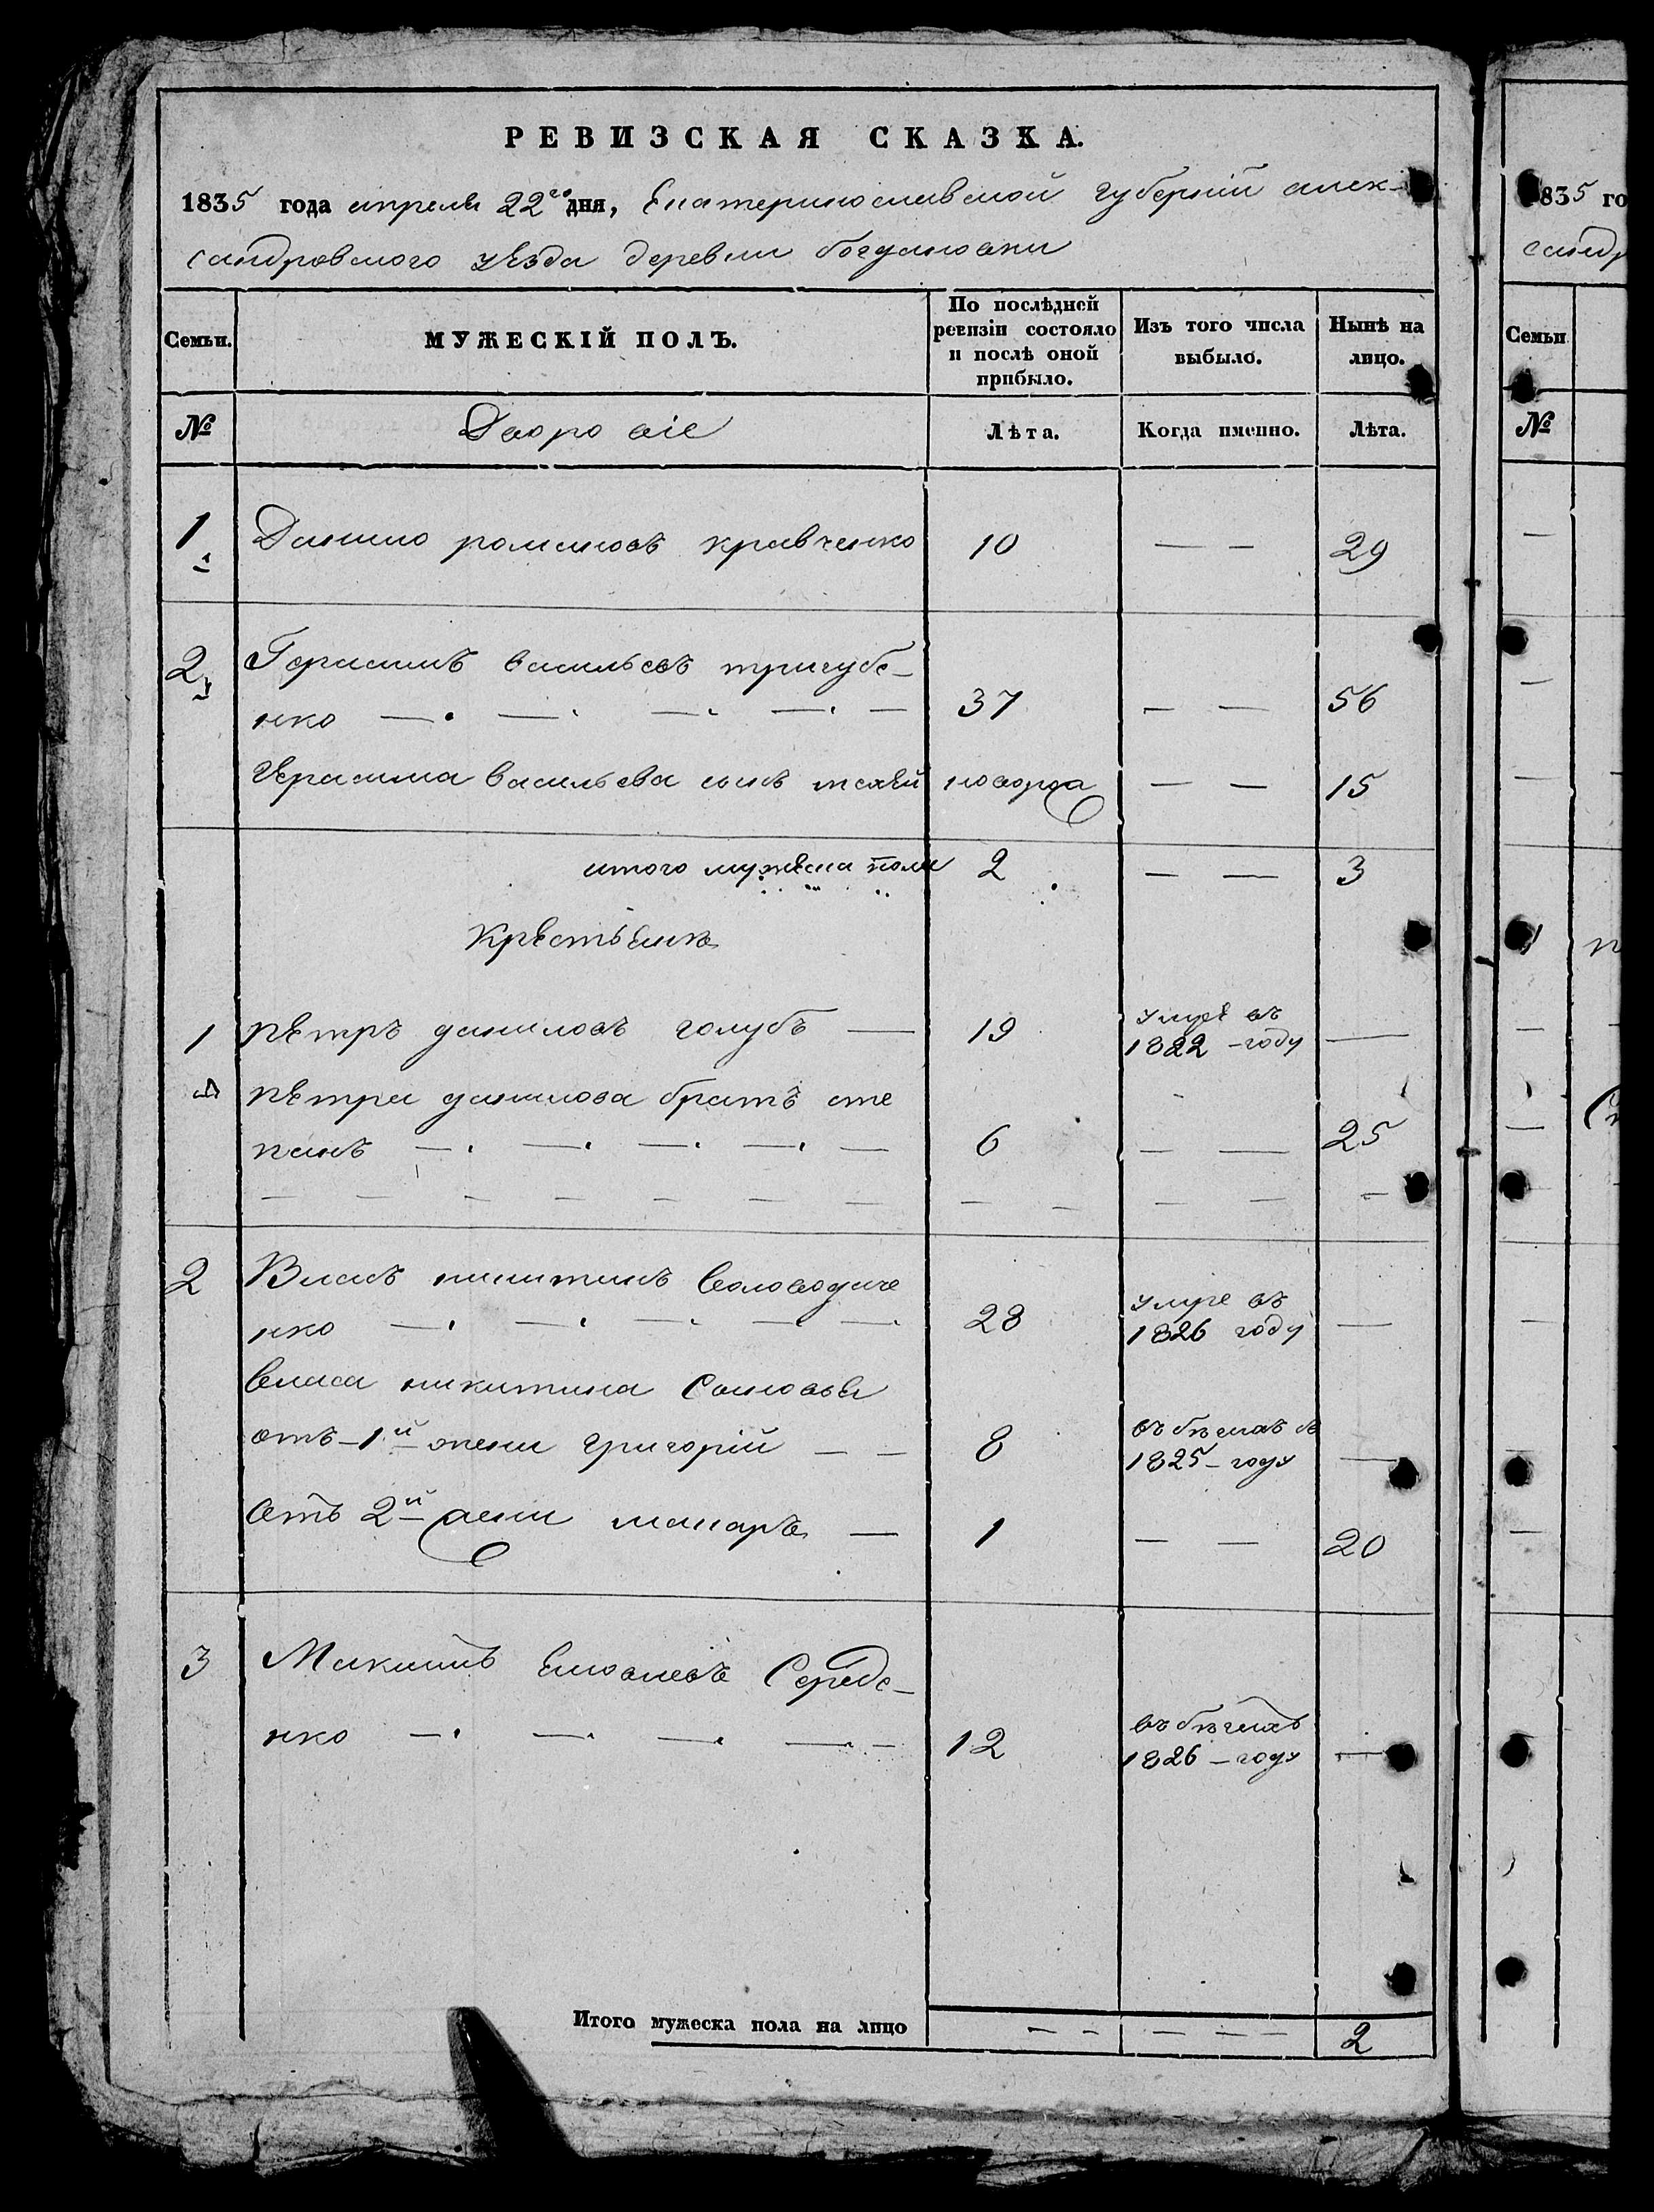 РЕВИЗСКАЯ СКАЗКА.
1835 года апреля 22го дня, Екатеринославской губернїи алек-
сандровского уезда деревни богдановки
Семьи.
МУЖЕСКІЙ ПОЛЪ.
По послѣдней ревизіи состояло и послѣ оной прибыло.
Изъ того числа выбыло.
Нынѣ на лицо.
№ Дворовіе Лѣта. Когда именно. Лѣта.
1 Данило романовъ кравченко 10 — — 29
2 Герасимъ васильевъ тригубе-
нко — — — — — 37 — — 56
Герасима васильева сынъ новорож — — 15
итого мужеска пола 2 — — 3
Крестьянъ
1 петръ даниловъ голубъ — 19 умре въ 1822 - году —
петра данилова братъ сте
панъ — — — — — 6 — — 25
— — — — — — — — — — — —
2 Власъ никитинъ Воловодиче
нко — — — — — 28 умре въ 1826 году —
власа никитина Сыновья
отъ - 1й жены григорїй — — 8 въ бегахъ въ 1825 - году —
Отъ 2й жены макаръ — 1 — — 20
3 Максимъ Середе-
нко — — — — — 12 въ бегахъ 1826 - году —
Итого мужеска пола на лицо — — — — — 2
1835 го
санд
Семьи
№